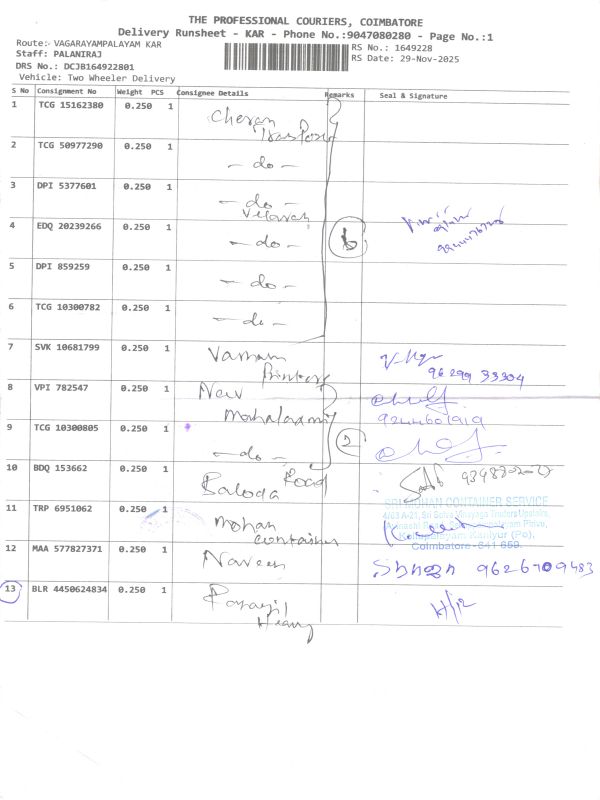 THE PROFESSIONAL COURIERS, COIMBATORE
Delivery Runsheet - KAR - Phone No.:9047080280 - Page No.:1
Route:- VAGARAYAMPALAYAM KAR
RS No.: 1649228
Staff: PALANIRAJ
RS Date: 29-Nov-2025
DRS No.: DCJB164922801
Vehicle: Two Wheeler Delivery
S No Consignment No Weight PCS Consignee Details Remarks Seal & Signature
1 TCG 15162380 0.250 1 Cheran
Transport
2 TCG 50977290 0.250 1 - do -
3 DPI 5377601 0.250 1 - do -
4 EDQ 20239266 0.250 1 - do - 6
5 DPI 859259 0.250 1 - do -
6 TCG 10300782 0.250 1 - do -
7 SVK 10681799 0.250 1
Printers 96299 33304
8 VPI 782547 0.250 1 New
Mahalaxmi 9244601919
9 TCG 10300805 0.250 1 - do - 2
10 BDQ 153662 0.250 1 Baroda Road
SRI MOHAN CONTAINER SERVICE
11 TRP 6951062 0.250 1 Mohan
container
Coimbatore - 641 659.
12 MAA 577827371 0.250 1 Naveen 9626709483
13 BLR 4450624834 0.250 1